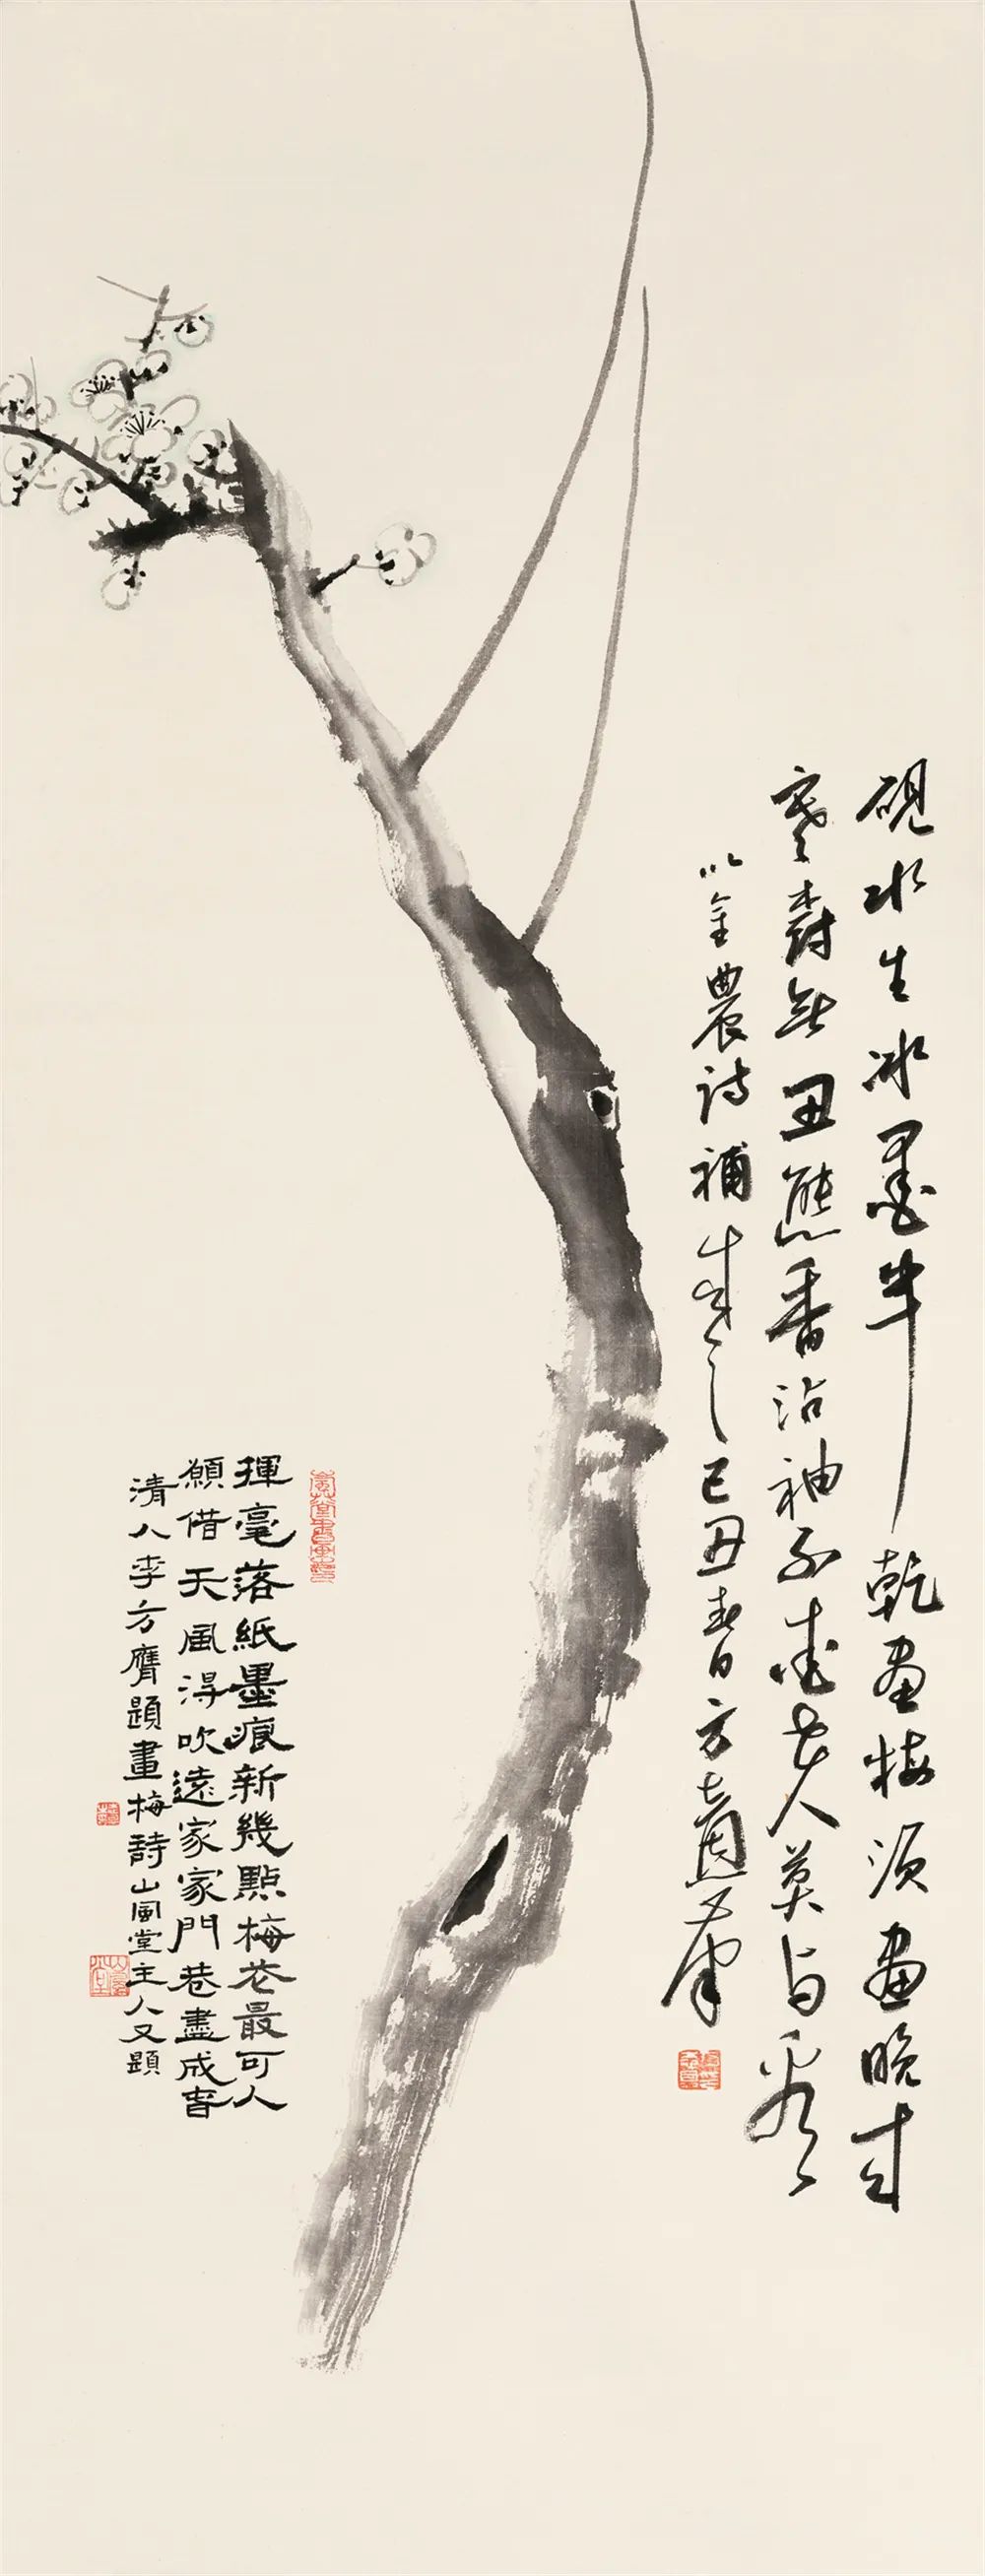 硯水生冰墨半乾畫梅須畫晚来
寒樹無丑態香沾袖不愛花人莫与看
以金農詩補成之己丑春日方
揮毫落紙墨痕新幾點梅花最可人
願借天風得吹遠家家門巷盡成春
清人李方膺題畫梅詩嵐堂主人又題